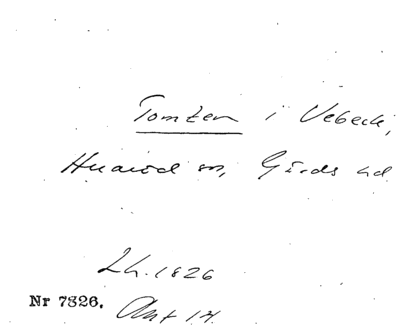 Tomten i Vebeck,
Huaröd sn, Gärds hd
Lh. 1826
Nr 7826. Akt 14.